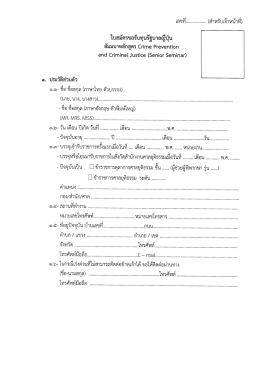 เลขที่............... (สำหรับเจ้าหน้าที่)
ใบสมัครขอรับทุนรัฐบาลญี่ปุ่น
สัมมนาหลักสูตร Crime Prevention
and Criminal Justice (Senior Seminar)
๑. ประวัติส่วนตัว
๑.๑- ชื่อ ชื่อสกุล (ภาษาไทย ตัวบรรจง)
(นาย, นาง, นางสาว)
- ชื่อ ชื่อสกุล (ภาษาอังกฤษ ตัวพิมพ์ใหญ่)
(MR. MRS. MISS)
๑.๒- วัน เดือน ปีเกิด วันที่ ............ เดือน ............ พ.ศ. ............
- ปัจจุบันอายุ ............ ปี ............ เดือน ............ วัน
๑.๓- บรรจุเข้ารับราชการครั้งแรกเมื่อวันที่ ..... เดือน ............ พ.ศ. ...... หน่วยงาน............
- บรรจุหรือโอนมารับราชการในสังกัดสำนักงานศาลยุติธรรมเมื่อวันที่ ....... เดือน ............ พ.ศ. ........
- ปัจจุบันเป็น ☐ ข้าราชการตุลาการศาลยุติธรรม ชั้น ...... (ผู้ช่วยผู้พิพากษา รุ่น .....)
☐ ข้าราชการศาลยุติธรรม ระดับ ............
ตำแหน่ง
กอง/สำนัก/ศาล
๑.๔- สถานที่ทำงาน
หมายเลขโทรศัพท์ ............ หมายเลขโทรสาร ............
๑.๕- ที่อยู่ปัจจุบัน บ้านเลขที่............ถนน............
ตำบล / แขวง ............ อำเภอ / เขต ............
จังหวัด ............โทรศัพท์............
โทรศัพท์มือถือ............E – mail............
๑.๖- ในกรณีเร่งด่วนที่ไม่สามารถติดต่อข้าพเจ้าได้ ขอให้ติดต่อผ่านทาง
(ชื่อ-นามสกุล) ............โทรศัพท์............
โทรศัพท์มือถือ ............